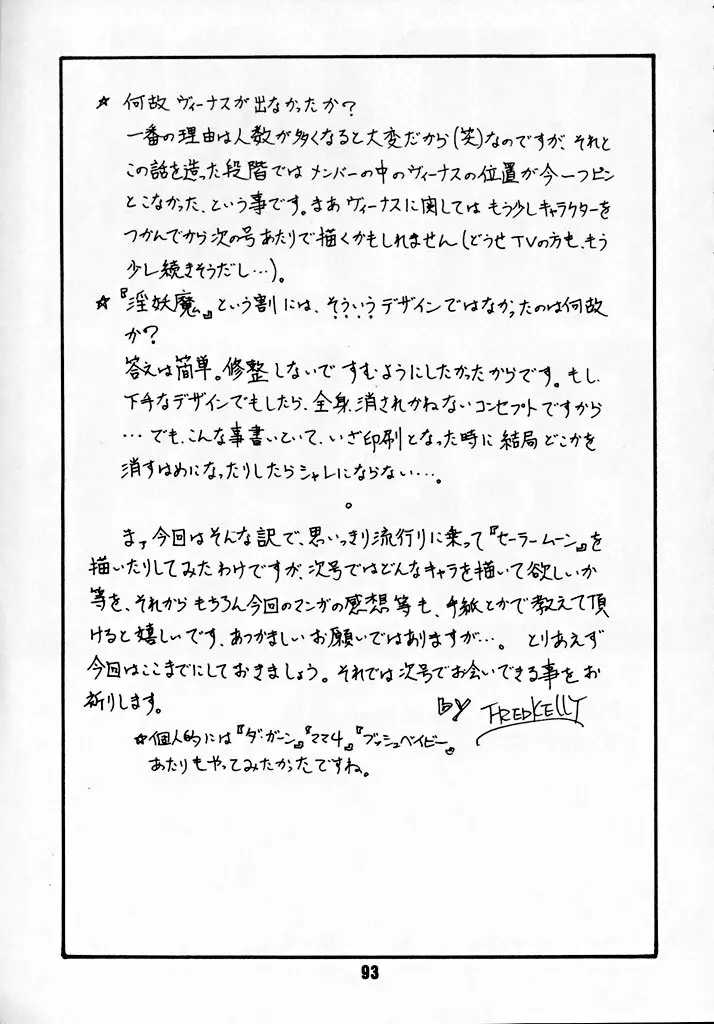 ☆ 何故ヴィーナスが出なかったか?
一番の理由は人数が多くなると大変だから(笑)なのですが、それと
この話を造った段階ではメンバーの中のヴィーナスの位置が今一つピン
とこなかった、という事です。まあヴィーナスに関してはもう少しキャラクターを
つかんでから次の号あたりで描くかもしれません(どうせTVの方も、もう
少し続きそうだし…)。
☆『淫妖魔』という割には、そういうデザインではなかったのは何故
か?
答えは簡単。修整しないですむようにしたかったからです。もし、
下手なデザインでもしたら、全身、消されかねないコンセプトですから
…でも、こんな事書いといて、いざ印刷となった時に結局どこかを
消すはめになったりしたらシャレにならない…。
○
まァ今回はそんな訳で、思いっきり流行りに乗って『セーラームーン』を
描いたりしてみたわけですが、次号ではどんなキャラを描いて欲しいか
等を、それからもちろん今回のマンガの感想等も、手紙とかで教えて頂
けると嬉しいです、あつかましいお願いではありますが…。とりあえず
今回はここまでにしておきましょう。それでは次号でお会いできる事をお
祈りします。
BY FREDKELLY
☆個人的には『ダ・ガーン』『ママ4』『ブッシュベイビー』
あたりもやってみたかったですね。
93